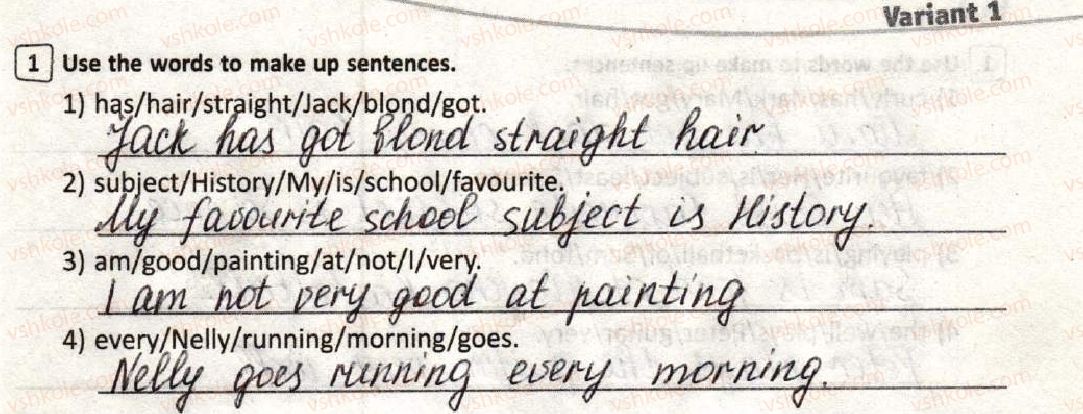 Variant 1
1 Use the words to make up sentences.
1) has/hair/straight/Jack/blond/got.
Jack has got blond straight hair
2) subject/History/My/is/school/favourite.
My favourite school subject is History.
3) am/good/painting/at/not/I/very.
I am not very good at painting
4) every/Nelly/running/morning/goes.
Nelly goes running every morning.